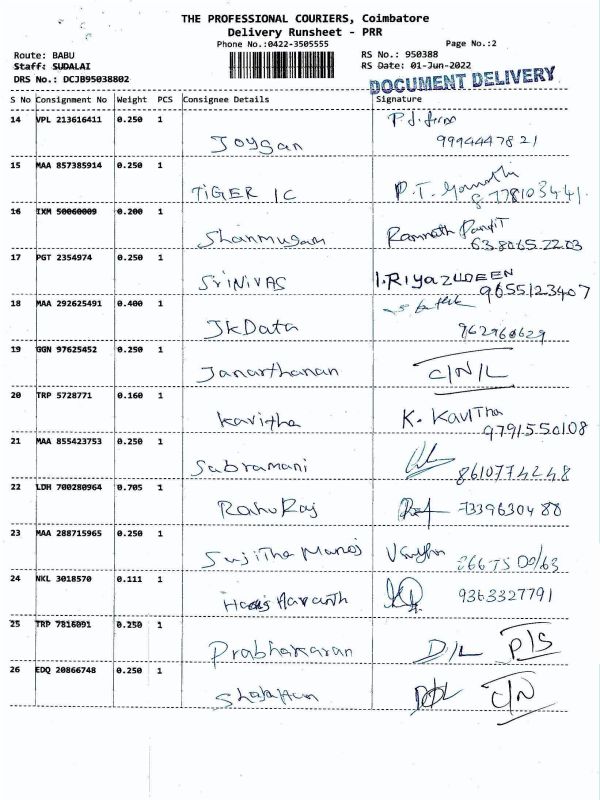 THE PROFESSIONAL COURIERS, Coimbatore
Delivery Runsheet - PRR
Phone No.:0422-3505555
Page No.:2
Route: BABU
RS No.: 950388
Staff: SUDALAI
RS Date: 01-Jun-2022
DRS No.: DCJB95038802
DOCUMENT DELIVERY
S No Consignment No Weight PCS Consignee Details Signature
14 VPL 213616411 0.250 1
Joysan 9944447821
15 MAA 857385914 0.250 1
TIGER IC P.T.
16 IXM 50060009 0.200 1
Shanmugam 638065 2203
17 PGT 2354974 0.250 1
SriNIVAS I.RiyazUDEEN
9655123407
18 MAA 292625491 0.400 1
JkData 962960629
19 GGN 97625452 0.250 1
Janarthanan C/N/L
20 TRP 5728771 0.160 1
Kavitha K. KaviTha
9791550108
21 MAA 855423753 0.250 1
Subramani 8610774248
22 LDH 700280964 0.705 1
Rahu Raj 7339630480
23 MAA 288715965 0.250 1
Sujitha Manoj
24 NKL 3018570 0.111 1
9363327791
25 TRP 7816091 0.250 1
Prabhakaran D/L P/S
26 EDQ 20866748 0.250 1
D/L C/N